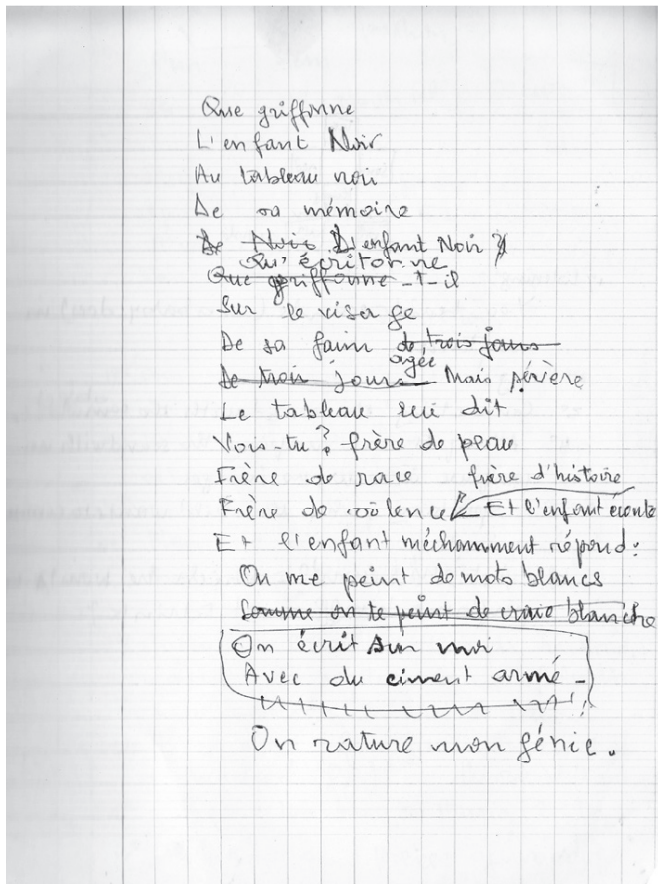 Que griffonne
L'enfant Noir
Au tableau noir
De sa mémoire
De Noir L'enfant Noir ?
Qu'écritonne
Que griffonne -t-il
Sur le visage
De sa faim de trois jours
agée
De trois jours Mais sévère
Le tableau lui dit :
Vois-tu ? frère de peau
Frère de race frère d'histoire
Frère de violence Et l'enfant écoute
Et l'enfant méchamment répond :
On me peint de mots blancs
Comme on te peint de craie blanche
On écrit sur moi
Avec du ciment armé -
On rature mon génie.